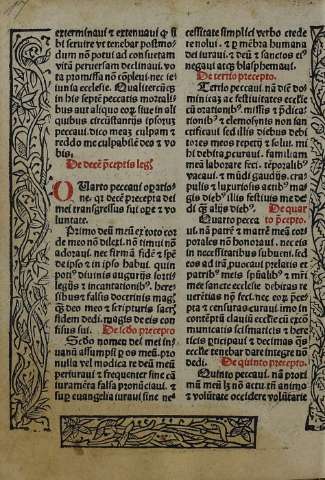 exterminaui ⁊ extenuaui qͥ si
bi seruire vt tenebar postmo-
dum nō potui ad consuetam
vitā peruersam declinaui. vo
ta promissa nō cōpleui.nec ie-
iunia ecclesie. Qualitercūqȝ
in his septē peccatis mortali-
bus aut aliquo eorū siue in ali
quibus circūstātijs ipsorū
peccaui.dico meaȝ culpam ⁊
reddo me culpabilē deo ⁊ vo
bis.
De decē p̄ceptis legꝭ
Quarto peccaui oratio-
ne. qꝛ decē precepta dei
mei transgressus sui ore ⁊ vo
luntate.
Primo deū meū ex toto cor
de meo nō dilexi.nō timui nō
adoraui.nec firmā fidē ⁊ spē
de ipso ⁊ in ipso habui. quin
poti⁹ diuinis augurijs sortil
legijs ⁊ incantationib⁹. here
sibus ⁊ falsis doctrinis magꝭ
qȝ deo meo ⁊ scripturis sacꝭ
fidem dedi. magis ī eis con
fisus sui. De scḋo precepto
Scḋo nomen dei mei in-
uanū assumpsi p os meū. pro
nulla vel modica re deū meū
periuraui ⁊ frequenter sine cā
iuramēta falsa pronūciaui. ⁊
sup euangelia iuraui sine ne-
cessitate simplici verbo crede
re nolui. ⁊ p mēbra humana
dei iuraui. ⁊ deū ⁊ sanctos ei⁹
negaui atqȝ blasphemaui.
De tertio precepto.
Tertio peccaui.nā diē do-
minicāȝ ⁊ festiuitates ecclesie
cū orationib⁹. missis ⁊ p̄dica-
tionib⁹ ⁊ elemosynis non san
ctificaui sed illis diebus debi
tores meos repetij ⁊ solui. mi
hi debita curaui. familiam
meā laborare feci. tēporalib⁹
vacaui. ⁊ mūdi gaudijs.crap-
pulis ⁊ luxurijs actib⁹ ma-
gis dieb⁹ illis festiuis me de
di qȝ alijs dieb⁹. De quar
to p̄cepto.
Quarto peccaui nā patrē ⁊ matrē meā
corales nō honoraui.nec eis
in necessitatibus subueni. sed
eos ad irā puocaui prelatis ⁊
patrib⁹ meis spūalib⁹ ⁊ mr̄i
mee sancte ecclesie debitas re
uerētias nō feci.nec eorū p̄ce-
pta ⁊ censuras curaui. imo in
contēptū clauiū ecclesie cū exco
municatis scismaticis ⁊ here
ticis pticipaui ⁊ decimas qȝ
ecclesie tenebar dare integre nō
dedi. De quinto precepto.
Quinto peccaui. nā proxi
mū meū lȝ nō actu tn̄ animo
⁊ voluntate occidere voluntarie